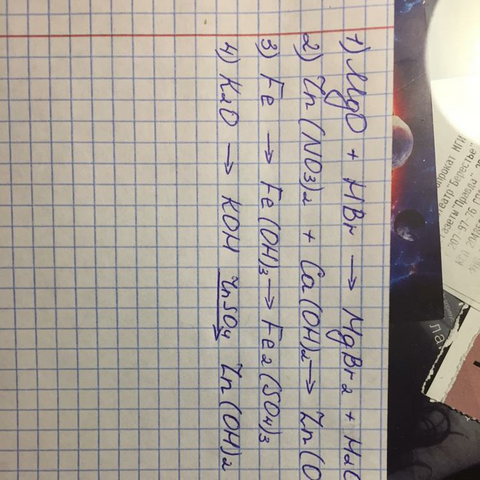 1) MgO + HBr → MgBr2 + H2O
2) Zn(NO3)2 + Ca(OH)2 → Zn(O
3) Fe → Fe(OH)3 → Fe2(SO4)3
4) K2O → KOH ZnSO4→ Zn(OH)2
прокат НГК
театр "Берестье"
газеты "Правда"
207-97-76
ла